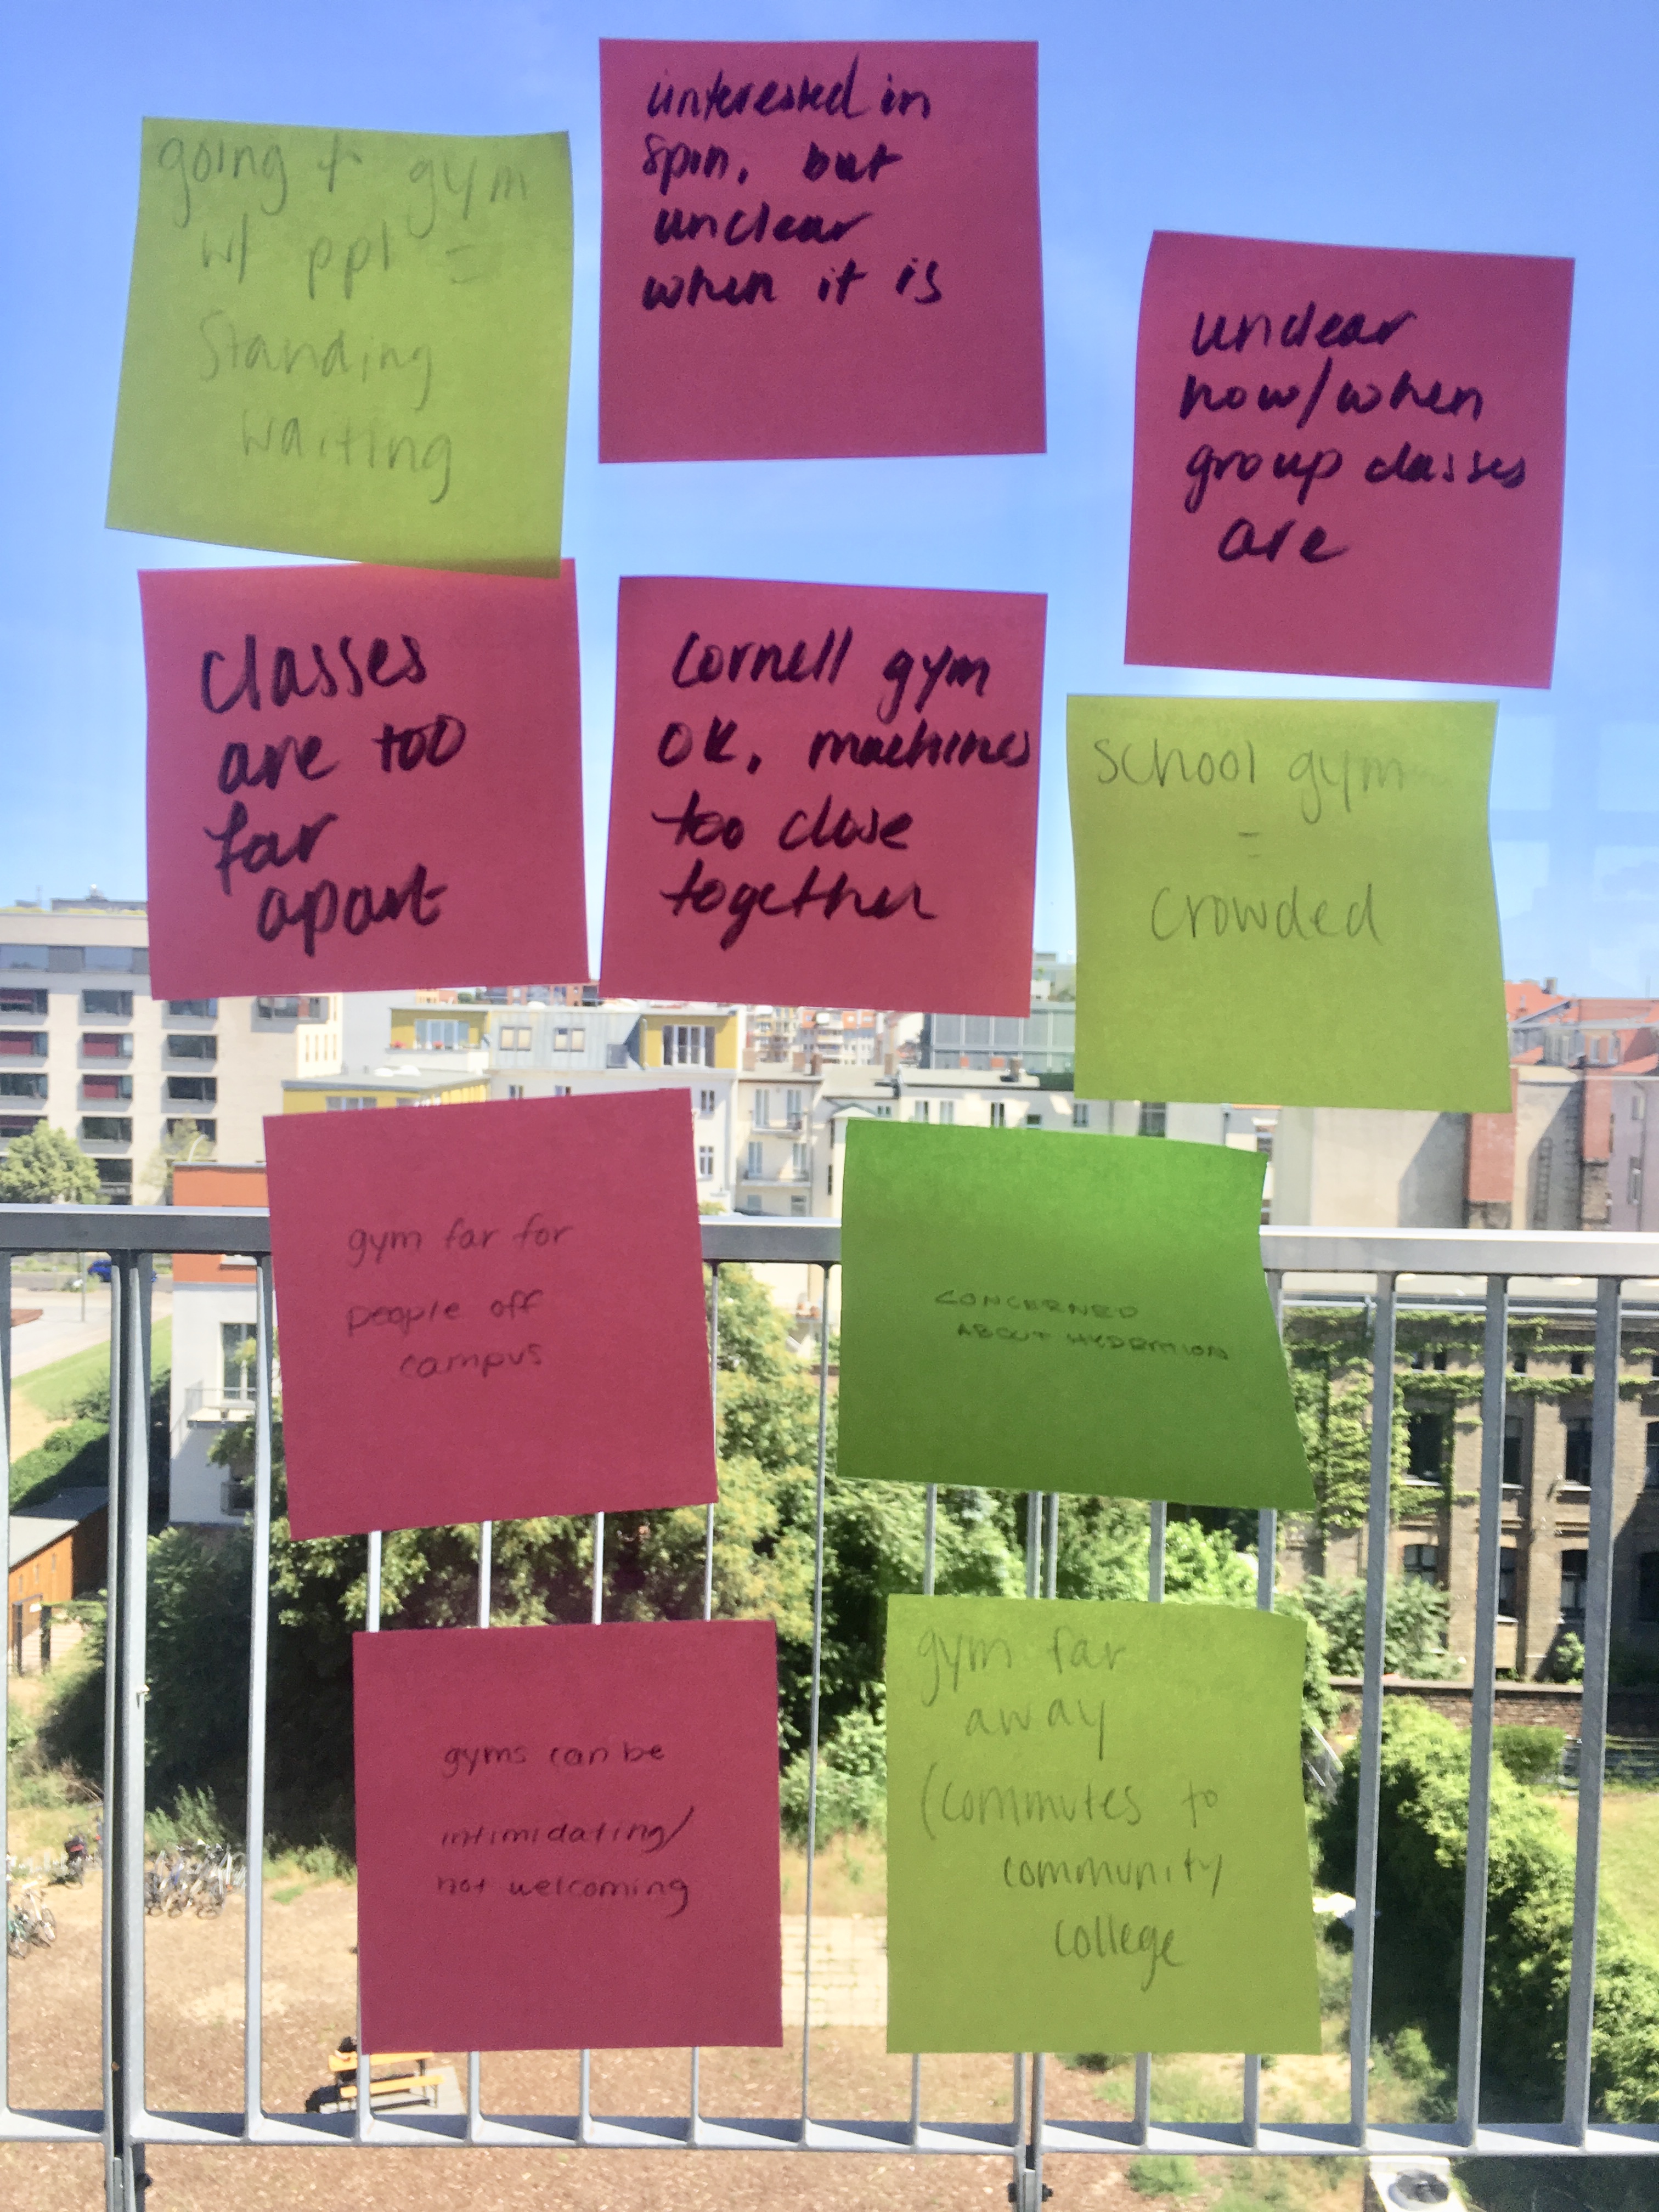 going to gym
w/ ppl =
standing
waiting
interested in
spin, but
unclear
when it is
unclear
how/when
group classes
are
classes
are too
far
apart
Cornell gym
OK, machines
too close
together
school gym
=
crowded
gym far for
people off
campus
CONCERNED
ABOUT HYDRATION
gyms can be
intimidating/
not welcoming
gym far
away
(commutes to
community
college